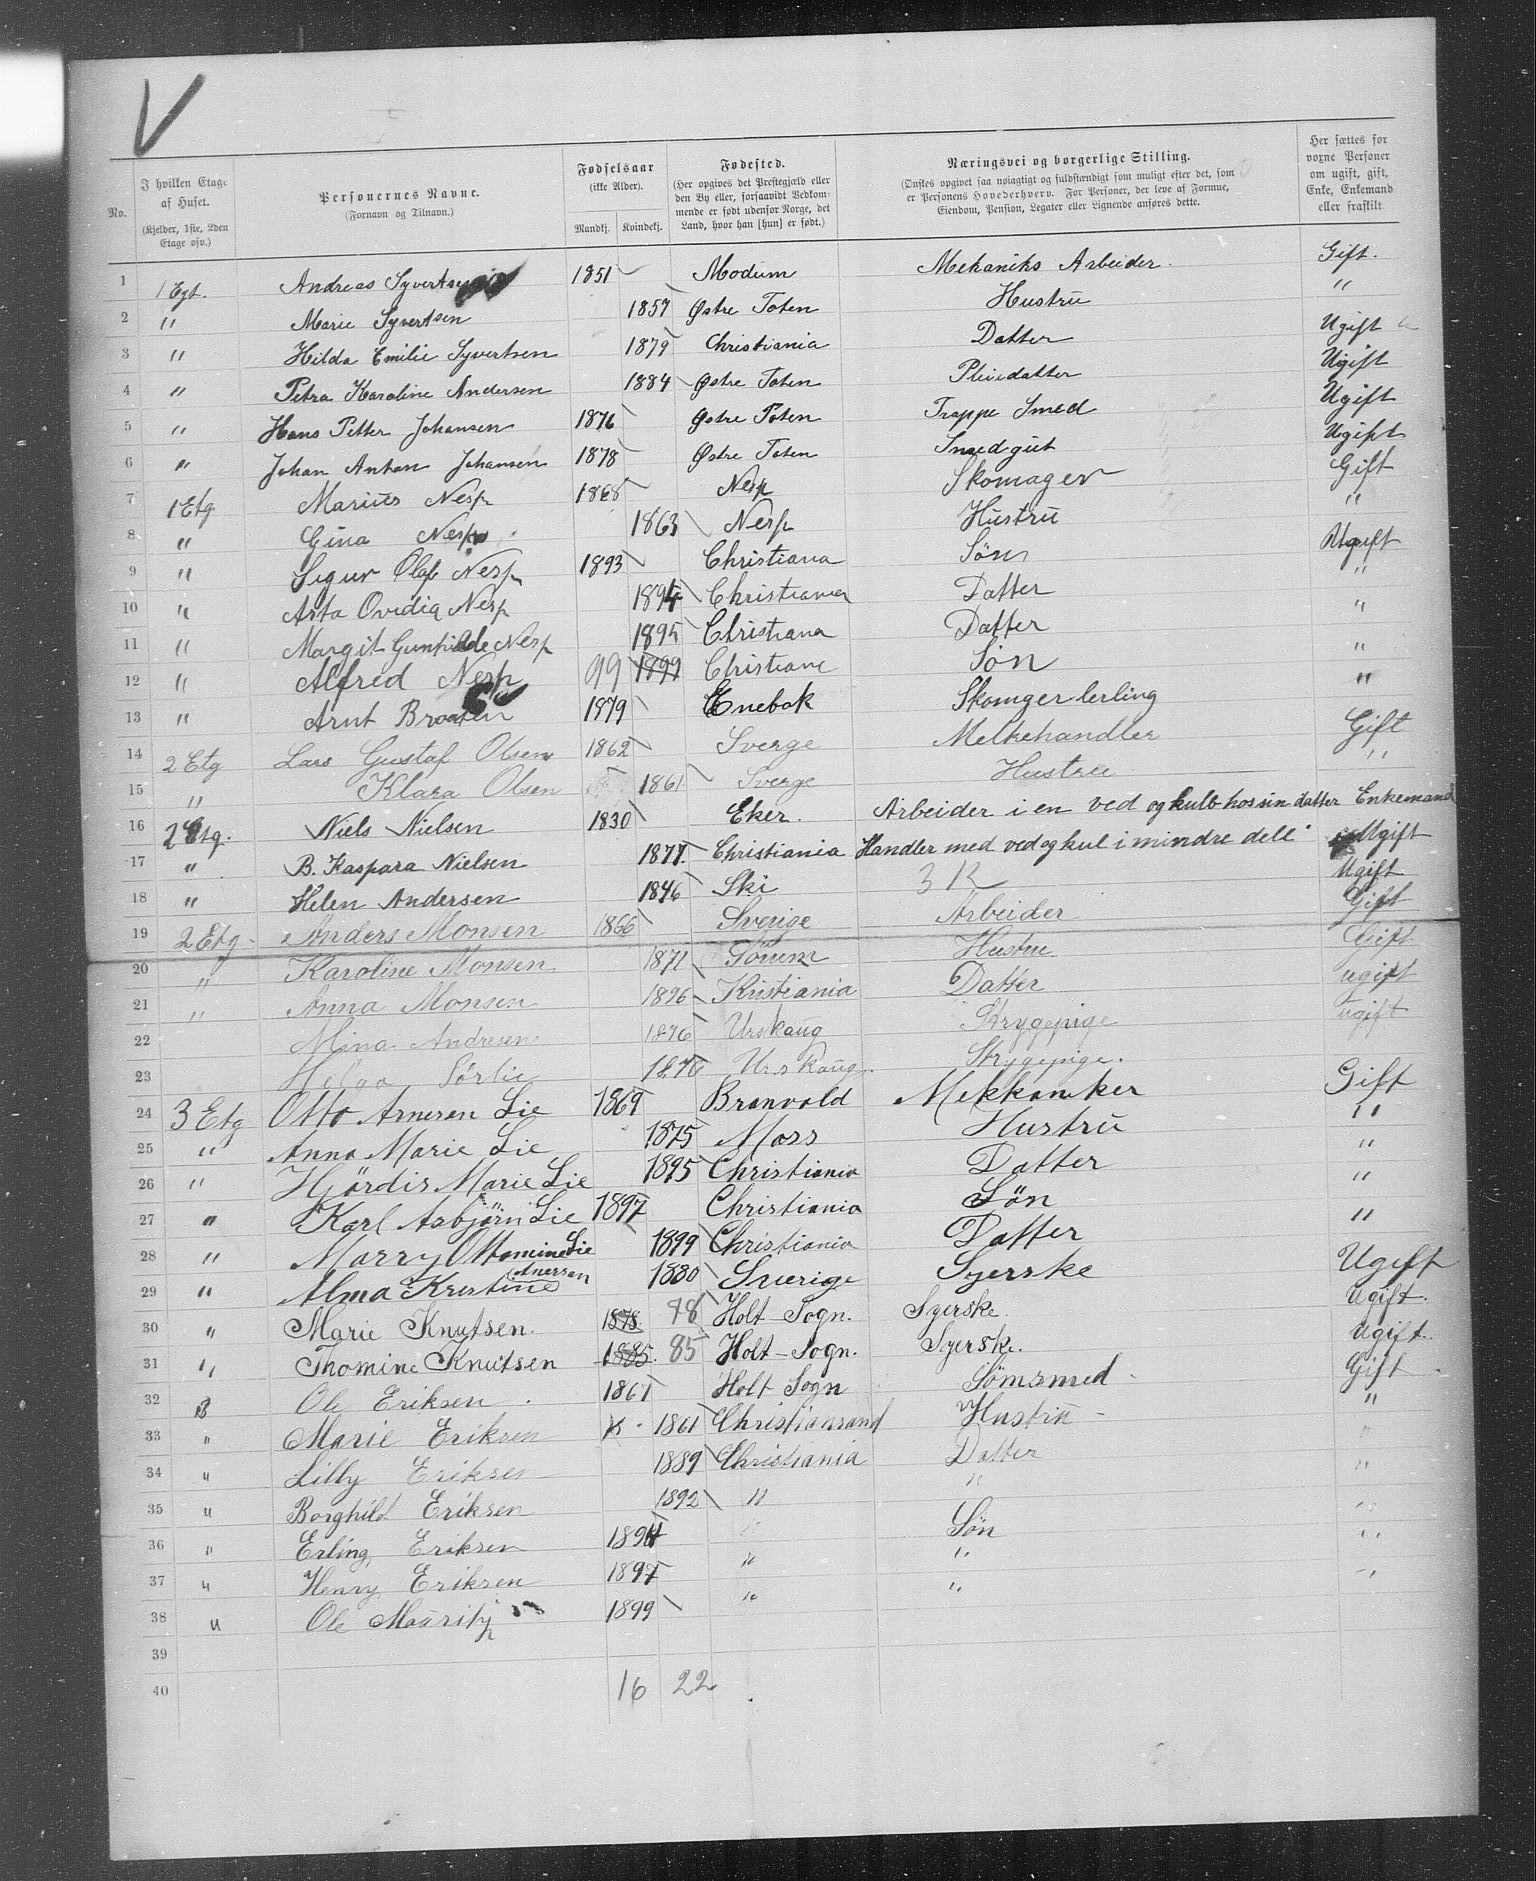 V
No.
I hvilken Etage af Huset.
(Kjelder, 1ste, 2den Etage osv.)
Personernes Navne.
(Fornavn og Tilnavn.)
Fødselsaar
(ikke Alder).
Mandkj. Kvindekj.
Fødested.
(Her opgives det Præstegjæld eller den By eller, forsaavidt Vedkommende er født udenfor Norge, det Land, hvor han [hun] er født.)
Næringsvei og borgerlige Stilling.
(Ønskes opgivet saa nøiagtigt og fuldstændigt som muligt efter det, som er Personens Hovederhverv. For Personer, der leve af Formue, Eiendom, Pension, Legater eller Lignende anføres dette.
Her sættes for voxne Personer om ugift, gift, Enke, Enkemand eller fraskilt
1 1 Egt. Andreas Syvertsen 1851 Modum Mekaniks Arbeider. Gift.
2 " Marie Syvertsen 1857 Østre Toten Hustru "
3 " Hilda Emilie Syvertsen 1879 Christiania Datter Ugift
4 " Petra Karoline Andersen 1884 Østre Toten Pleiedatter Ugift
5 " Hans Petter Johansen 1876 Østre Toten Trappe Smed Ugift
6 " Johan Anton Johansen 1878 Østre Toten Smedgut Ugift
7 1 Etg Marius Nesp 1868 Nesp Skomager Gift
8 " Gina Nesp 1863 Nesp Hustru "
9 " Sigur Olaf Nesp 1893 Christiana Søn Ugift
10 " Asta Ovidia Nesp 1894 Christiania Datter "
11 " Margit Gunhilde Nesp 1895 Christiana Datter "
12 " Alfred Nesp 99 1899 Christiane Søn "
13 " Arnt Braaten 1879 Enebak Skomger lerling "
14 2 Etg Lars Gustaf Olsen 1862 Sverge Melkehandler Gift
15 " Klara Olsen 1861 Sverge Hustru "
16 2 Etg. Niels Nielsen 1830 Eker. Arbeider i en ved og kulb hos sin datter Enkemand
17 " B. Kaspara Nielsen 1877. Christiania Handler med ved og kul i mindre dell. Ugift
18 " Helen Andersen 1846 Ski Ugift
19 2 Etg. Anders Monsen 1866 Sverige Arbeider Gift
20 " Karoline Monsen 1871 Sørum Hustru Gift
21 " Anna Monsen 1896 Kristiania Datter ugift
22 Mina Andresen 1876 Urskaug Strygepige ugift
23 Helga Sörlie 1876 Urskaug Strygepige.
24 3 Etg Otto Arnesen Lie 1869 Branvold Mekkaniker Gift
25 " Anna Marie Lie 1875 Moss Hustru "
26 " Hjördis Marie Lie 1895 Christiania Datter "
27 " Karl Asbjörn Lie 1897 Christiania Søn
28 " Marry Ottomine Lie 1899 Christiania Datter "
29 " Alma Kristine Anersen 1880 Sverige Syerske Ugift
30 " Marie Knutsen. 1878 78 Holt-Sogn. Syerske. Ugift.
31 " Thomine Knutsen 1885. 85 Holt-Sogn. Syerske. Ugift.
32 3 Ole Eriksen. 1861 Holt Sogn Sømsmed Gift
33 " Marie Eriksen 1861 Christiansand Hustru "
34 " Lilly Eriksen 1889 Christiania Datter "
35 " Borghild Eriksen 1892 " " "
36 " Erling Eriksen 1894 " Søn "
37 " Henry Eriksen 1897 " " "
38 " Ole Mauritz 1899 " " "
39
40 16 22